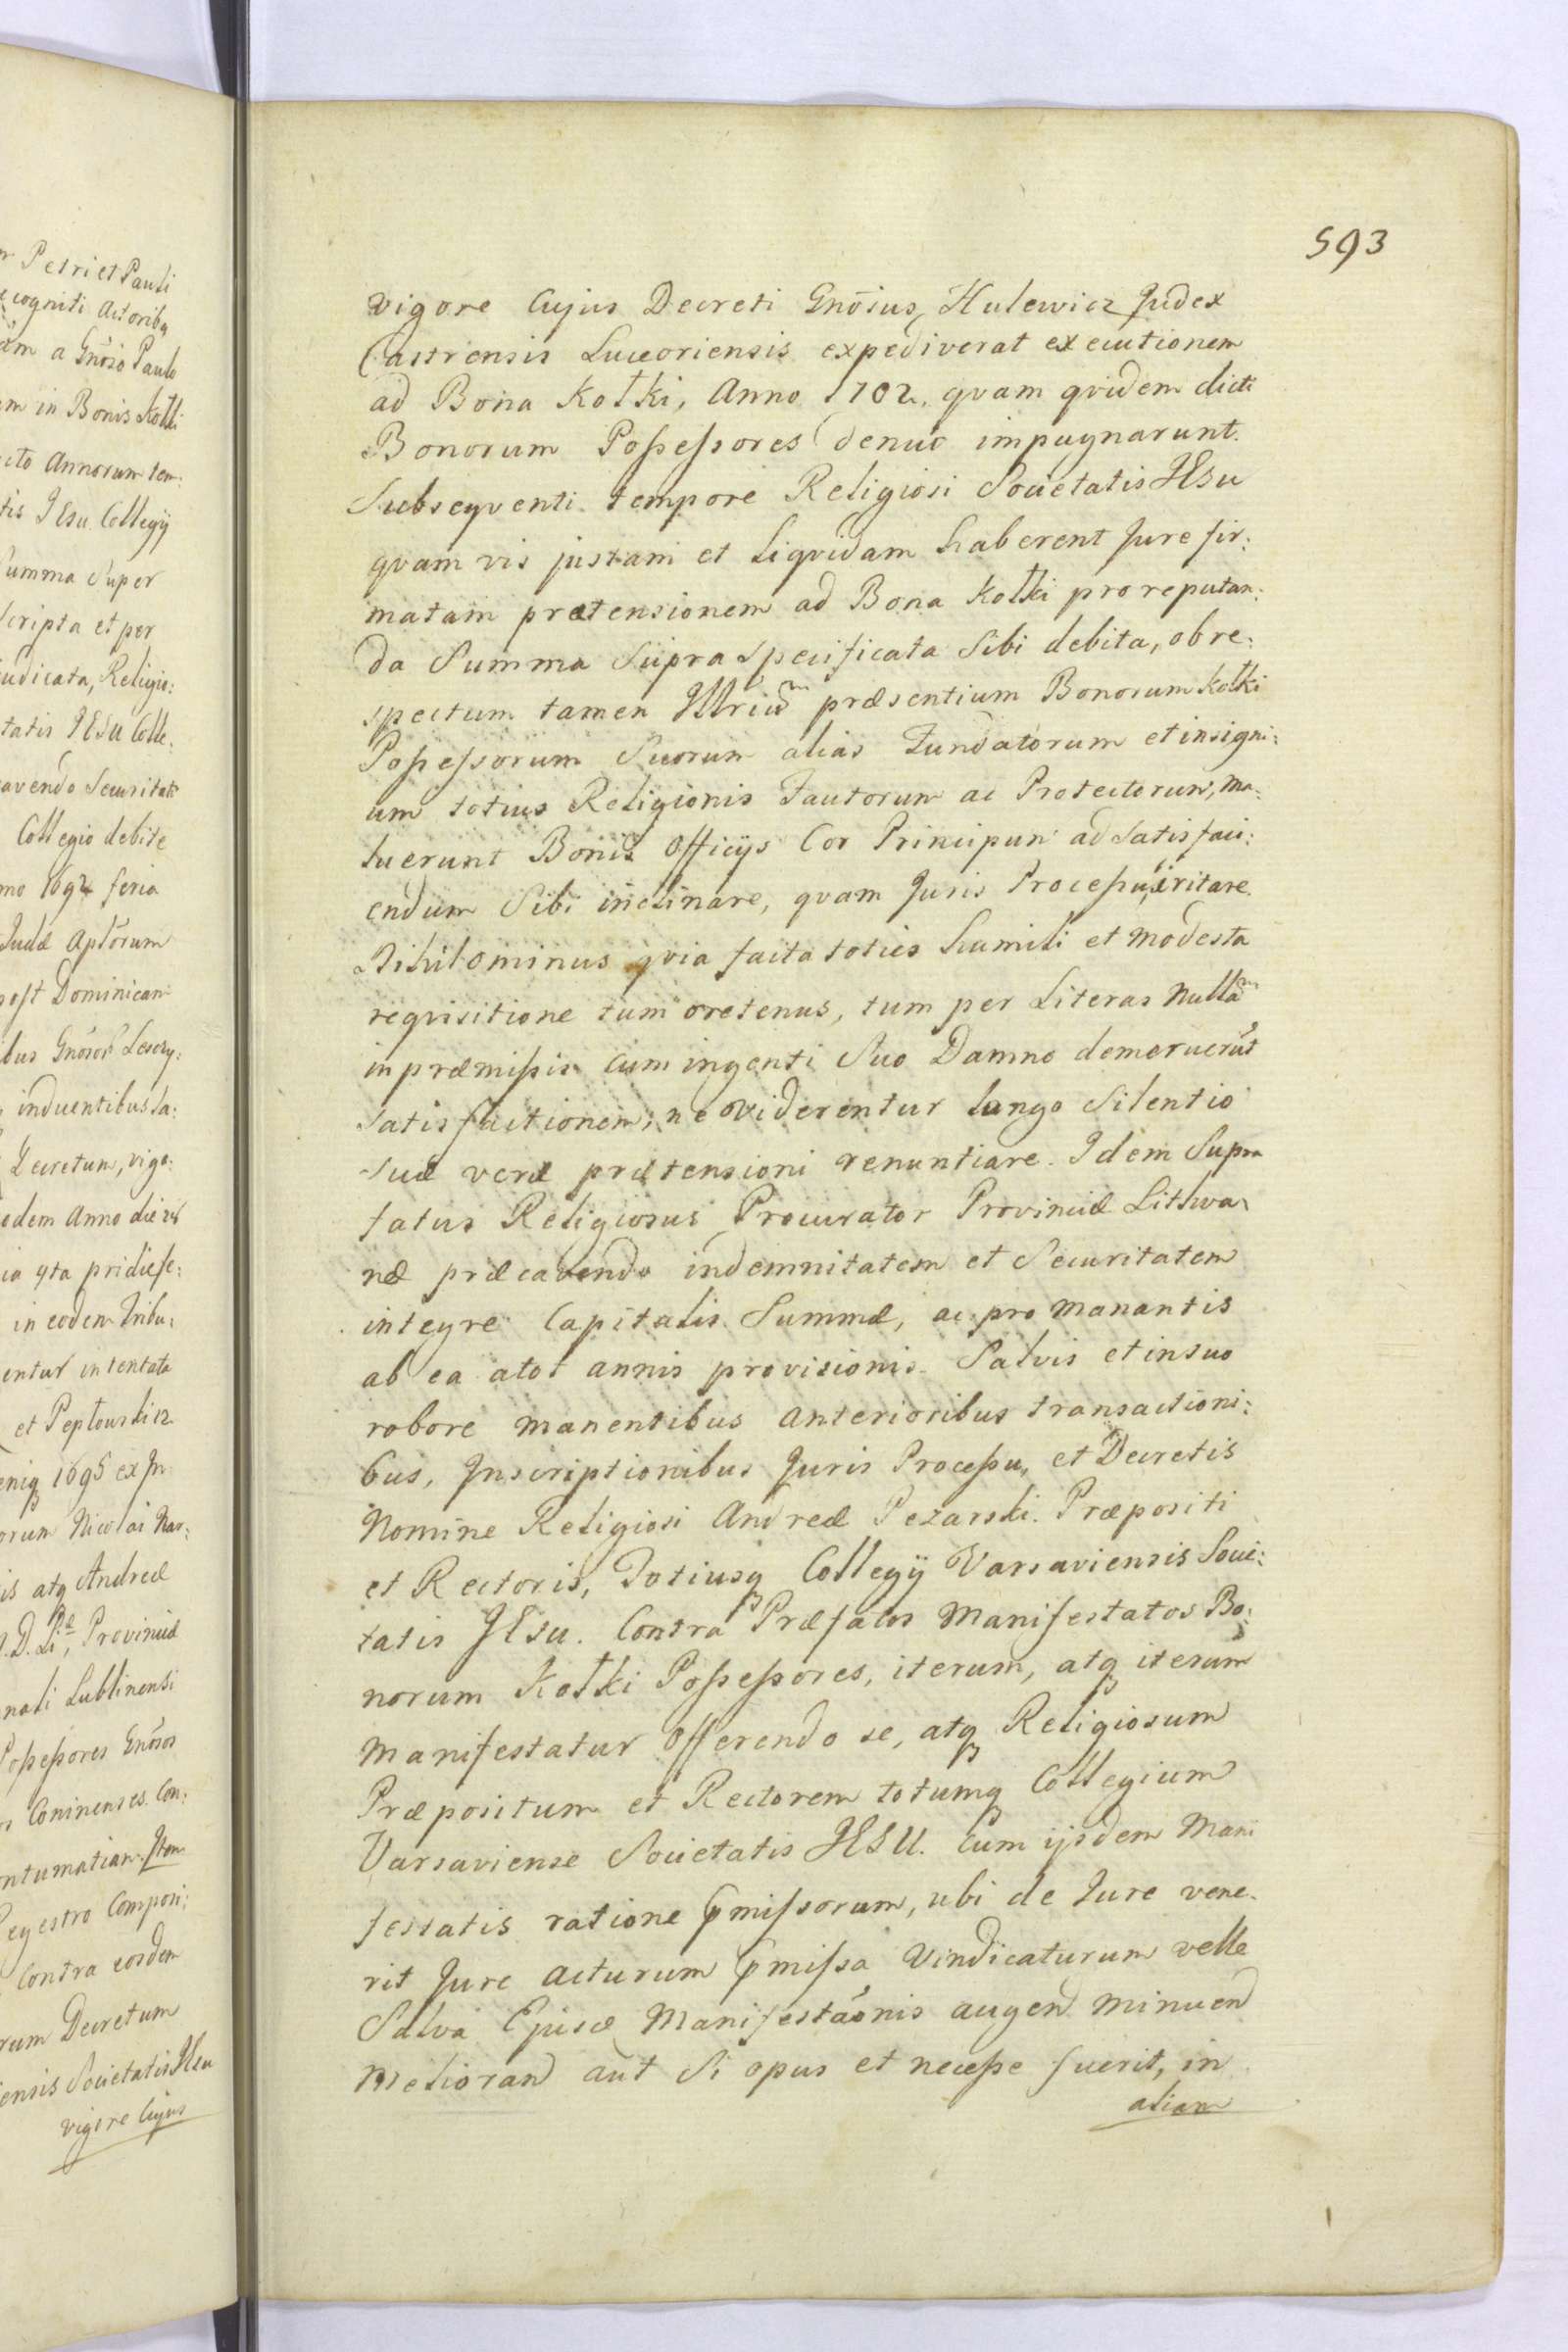 r Petri et Pauli
cogniti Actoribq
am a Gnõso Paulo
em in Bonis Kołki
cto Annorum tem:
tis JEsu Collegÿ
Summa Super
scripta et per
judicata, Religio:
tatis JESU Colle:
avendo Securitati
Collegio debite
mo 1694 feria
Judæ Aptõrum
post Dominicam
ibus Gnõsor Leszy:
induentibus Sa:
Decretum, vigo:
eodem Anno die
ia 4ta pridie fe:
in eodem Tribu:
entur intentata
et Pepłowskich
eniq 1695 ex In
orum Nicolai Nar:
is atq Andreæ
M.D.Li, Provinciæ
nali Lublinensi
Poßeßores Gnõsos
Coninenses Con:
ontumatiam Item
Regestro Composi:
Contra eosdem
rum Decretum
iensis Societatis JEsu
vigore Cujus
593
vigore Cujus Decreti Gnõsus Hulewicz Judex
Castrensis Luceoriensis expediverat executionem
ad Bona Kołki, Anno 1702. qvam qvidem dicti
Bonorum Poßeßores denuo impugnarunt.
Subseqventi tempore Religiosi Societatis JEsu
qvam vis justam et liqvidam haberent Jure fir:
matam prætensionem ad Bona Kołki pro reputan:
da Summa Supra specificata Sibi debita, ob re:
spectum tamen Illriũm præsentium Bonorum Kołki
Poßeßorum Suorum alias Fundatorum et insigni:
um totius Religionis Fautorum ac Protectorum, ma:
luerunt Bonis Officÿs Cor Principum ad Satisfaci:
endum Sibi inclinare, qvam Juris Proceßu, iritare
Nihilominus qvia facta toties humili et modesta
reqvisitione tum oretenus, tum per Literas Nullam
in præmißis cum ingenti Suo Damno demeruerũt
Satisfactionem; ne viderentur longo Silentio
suæ veræ prætensioni renuntiare. Idem Supra
fatus Religiosus Procurator Provinciæ Lithva:
næ præcavendo indemnitatem et Securitatem
integre Capitalis Summæ, ac pro manantis
ab ea a tot annis provisionis. Salvis et in suo
robore manentibus anterioribus transactioni:
bus, Inscriptionibus Juris Proceßu, et Decretis
Nomine Religiosi Andreæ Pezarski. Præpositi
et Rectoris, Totiusq Collegÿ Varsaviensis Socie:
tatis JEsu. Contra Præfatos Manifestatos Bo:
norum Kołki Poßeßores, iterum, atq iterum
manifestatur Offerendo se, atq Religiosum
Præpositum et Rectorem totumq Collegium
Varsaviense Societatis JESU. cum ijsdem Mani
festatis ratione p̃mißorum, ubi de Jure vene:
rit Jure acturum p̃mißa vindicaturum velle
Salva Ejusce Manifestaõnis augend minuend
meliorand aut Si opus et neceße fuerit, in
aliam